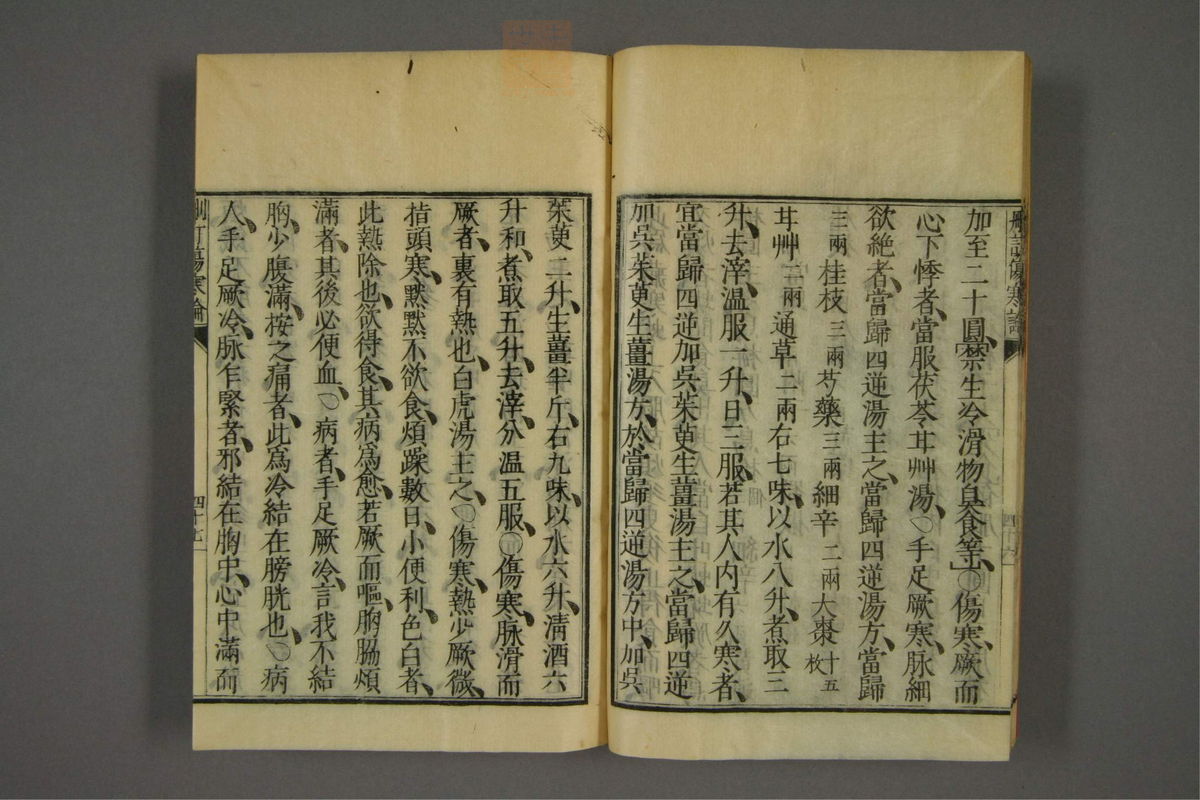 加至二十圓、禁生冷滑物臭食等」○傷寒、厥而
心下悸者、當服茯苓甘艸湯、○手足厥寒、脉細
欲絶者、當歸四逆湯主之、當歸四逆湯方、當歸
三兩桂枝三兩芍藥三兩細辛二兩大棗十五枚
甘艸二兩通草二兩右七味、以水八升、煮取三
升、去滓、温服一升、日三服、若其人內有久寒者、
宜當歸四逆加吳茱萸生薑湯主之、當歸四逆
加吳茱萸生薑湯方、於當歸四逆湯方中、加吳
刪訂傷寒論
四十六
茱萸二升、生薑半斤、右九味、以水六升、清酒六
升和、煮取五升、去滓、分温五服、○傷寒、脉滑而
厥者、裏有熱也、白虎湯主之、○傷寒、熱少厥微、
指頭寒、默默不欲食、煩躁數日、小便利、色白者、
此熱除也、欲得食、其病爲愈、若厥而嘔、胸脇煩
滿者、其後必便血、○病者、手足厥冷、言我不結
胸、少腹滿、按之痛者、此爲冷結在膀胱也、○病
人、手足厥冷、脉乍緊者、邪結在胸中、心中滿而
刪訂傷寒論
四十七